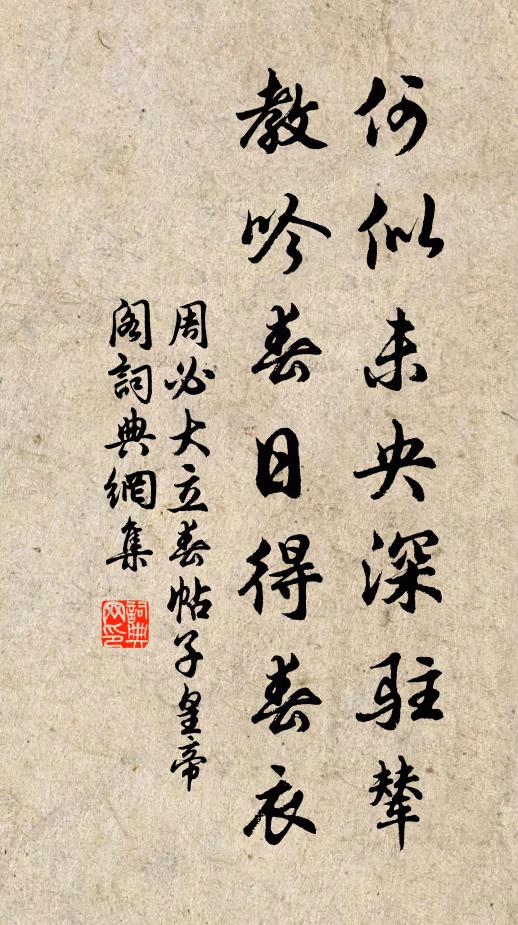 何似未央深駐輦
教吟春日得春衣
周必大立春帖子皇帝
閣詞典網集
詞典网印